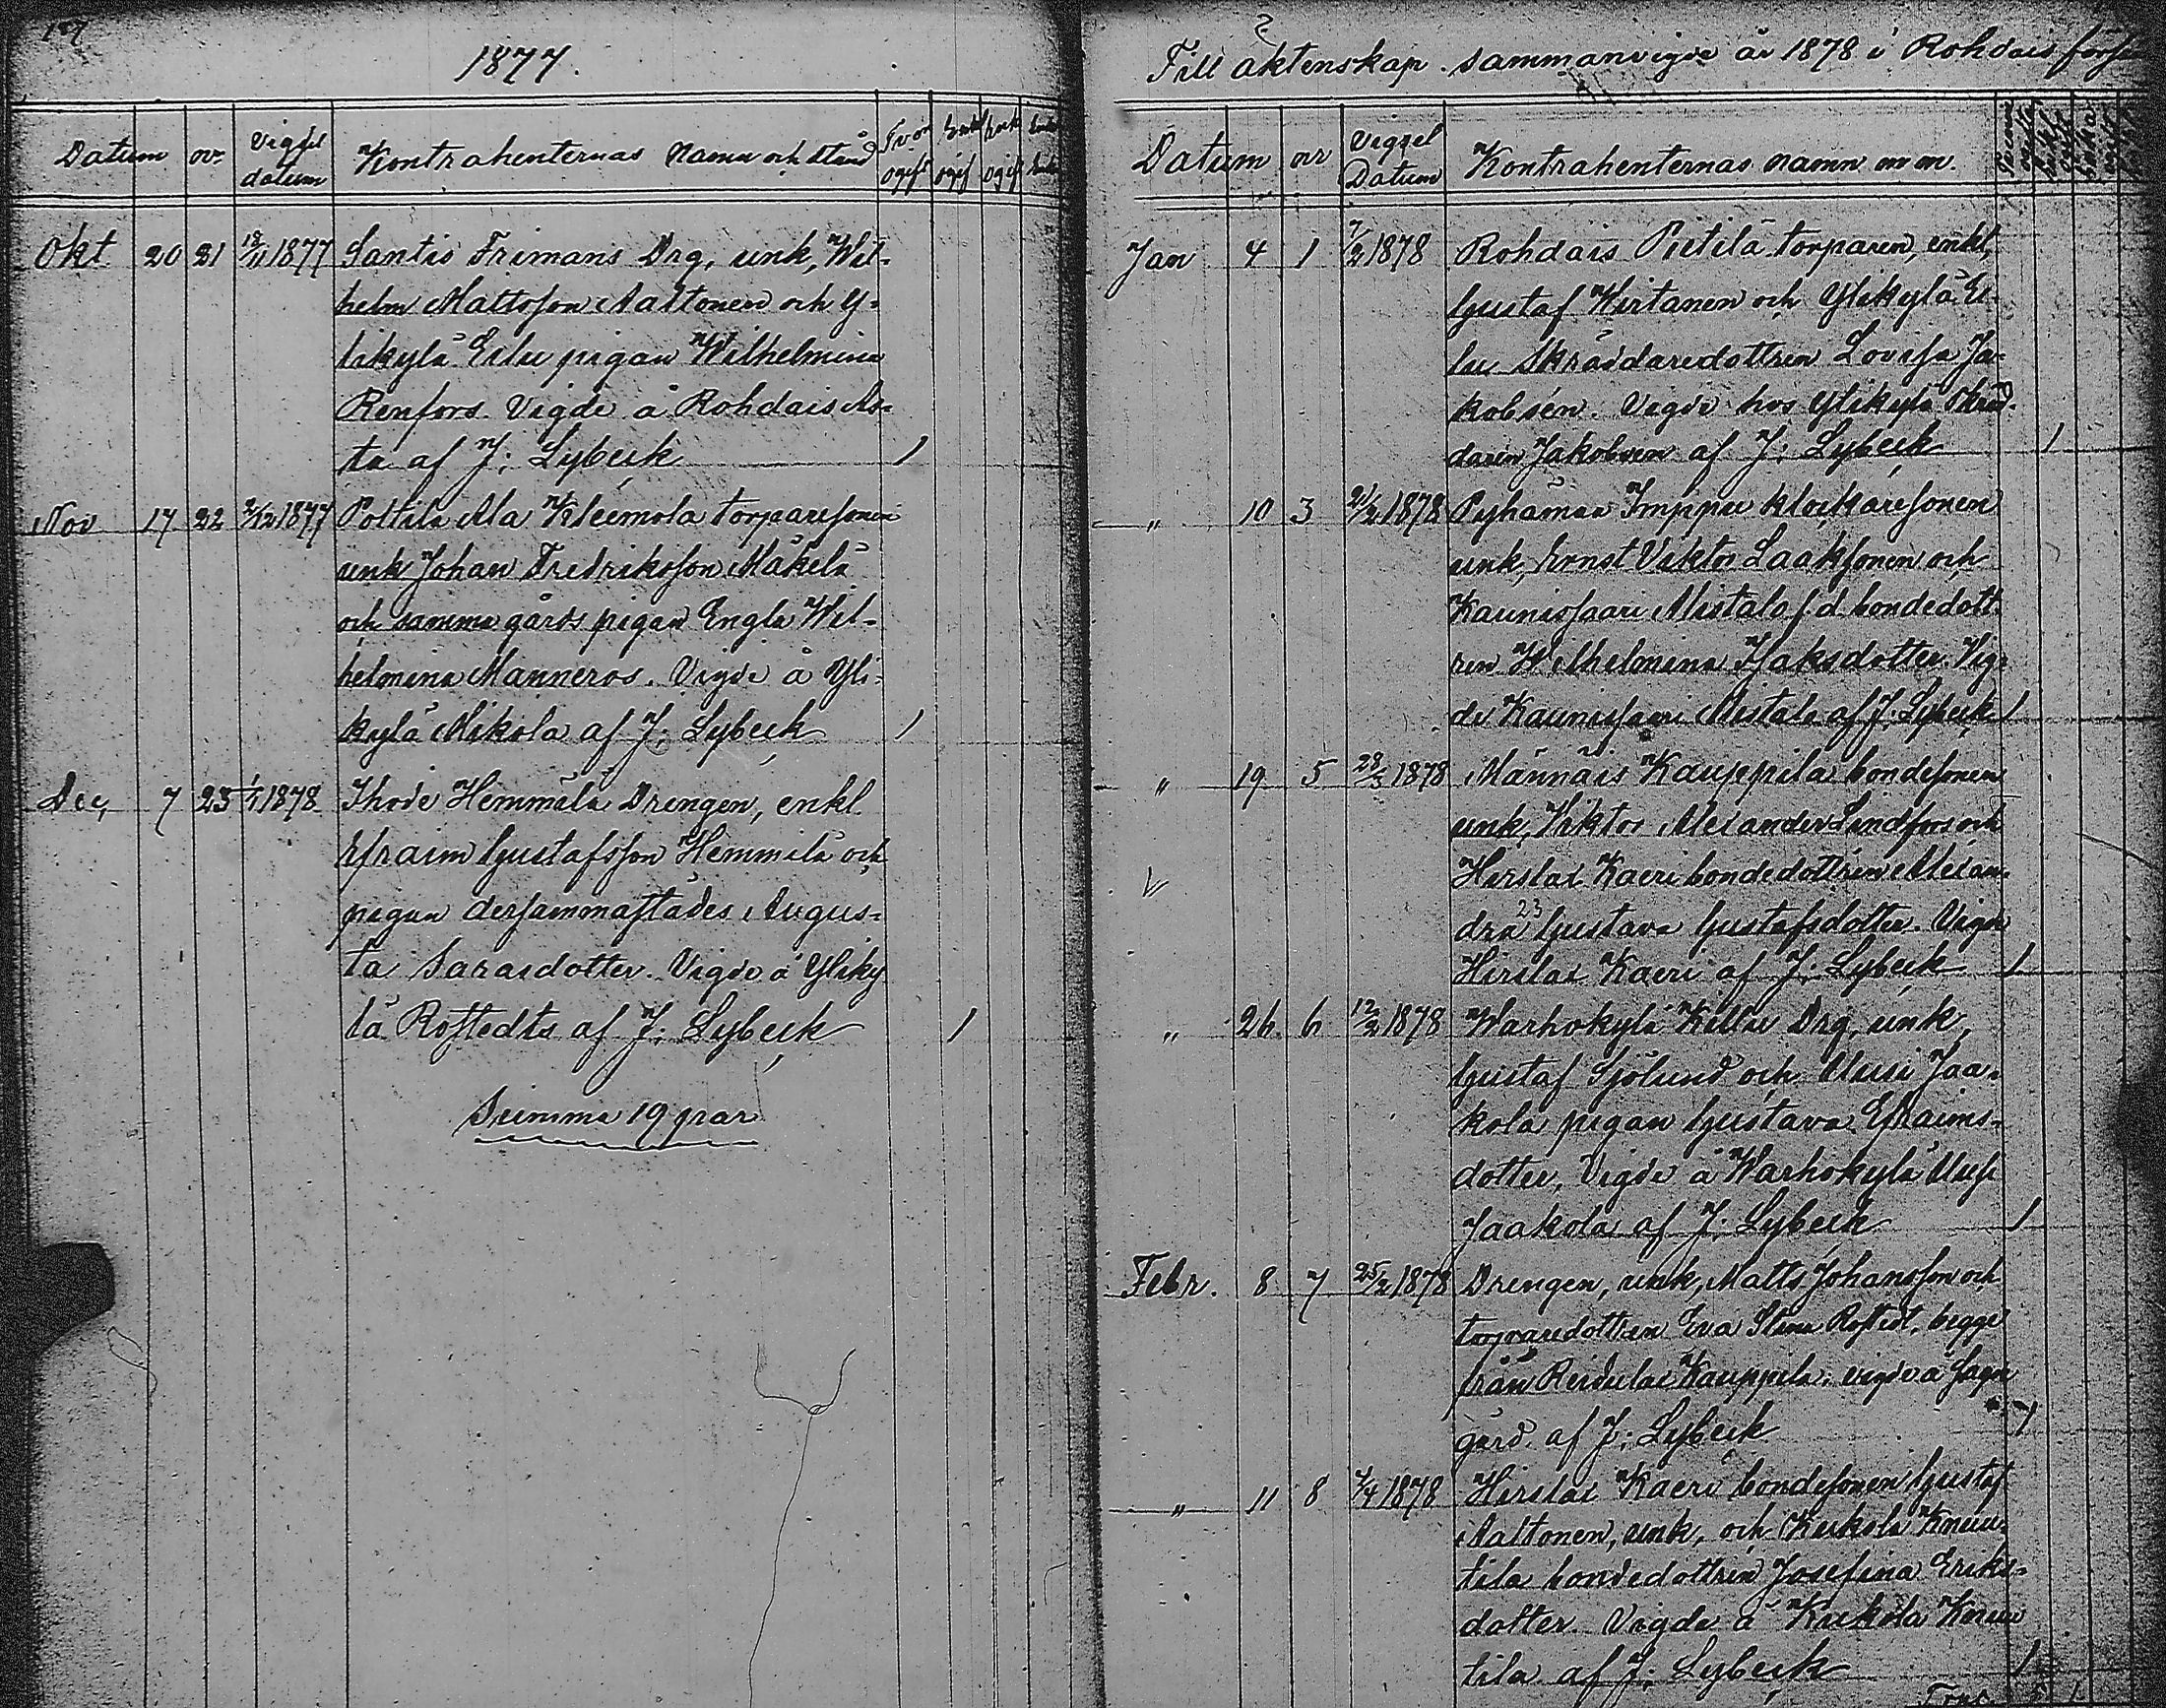 1877.
Datum nr Vigsel datum Kontrahenternas Namn och stånd
Okt 20 21 18/11 1877 Santis Frimans Drg, unk, Wil-
helm Mattsson Aaltonen och Y-
likylä Eilu pigan Wilhelmina
Renfors. Vigde å Rohdais As-
ta af J: Lybeck 1
Nov 17 22 2/12 1877 Poltila Ala Kleemola torparesonen
unk Johan Fredriksson Mäkelä
och samma gårds pigan Engla Wil-
helmina Manneros. Vigde å Yli-
kylä Mikola af J: Lybeck 1
Dec, 7 23 1/1 1878 Ihode Hemmilä Drengen, enkl.
Efraim Gustafsson Hemmilä och
pigan dersammastädes Augus-
ta Saraidotter. Vigde å Yliky
lä Rostedts af J: Lybeck 1
Summa 19 par
Till äktenskap sammanvigde år 1878 i Rohdais
Datum nr Vigsel Datum Kontrahenternas namn m m.
Jan 4 1 7/2 1878 Rohdais Pietilä torparen, enkl,
Gustaf Wirtanen och Ylikylä Ei-
lu Skräddaredottren Lovisa Ja-
kobsén. Vigde hos Ylikylä Skräd-
daren Jakobsen af J: Lybeck 1
" 10 3 21/2 1878 Pyhämaa Imppu klockaresonen
unk, Ernst Viktor Laaksonen och
Kaunissaari Mistala f d bondedott-
ren Wilhelmina Isaksdotter. Vig-
de Kaunissaari Mistala af J. Lybeck 1
" 19 5 28/3 1878 Männäis Kauppila bondesonen
unk, Viktor Alexander Lindfors och
Hirslax Kaeri bondedottren Alexan-
dra 23 Gustava Gustafsdotter. Vigde
Hirslax Kaeri af J. Lybeck 1
" 26 6 12/2 1878 Warhokylä Killu Drg, unk,
Gustaf Sjölund och Uusi Jaa-
kola pigan Gustava Efraims-
dotter, Vigde å Warhokylä Uusi
Jaakola af J. Lybeck 1
Febr. 8 7 25/2 1878 Drengen, unk, Matts Johansson och
torparedottren Eva Stina Rostedt, begge
från Reidulax Kauppila. vigde å
gård af J: Lybeck 1
" 11 8 4/4 1878 Hirslax Kaeri bondesonen Gustaf
Aaltonen, unk, och Kukola Knuu-
tila bondedottren Josefina Eriks-
dotter. Vigde å Kukola Knuu
tila af J: Lybeck 1